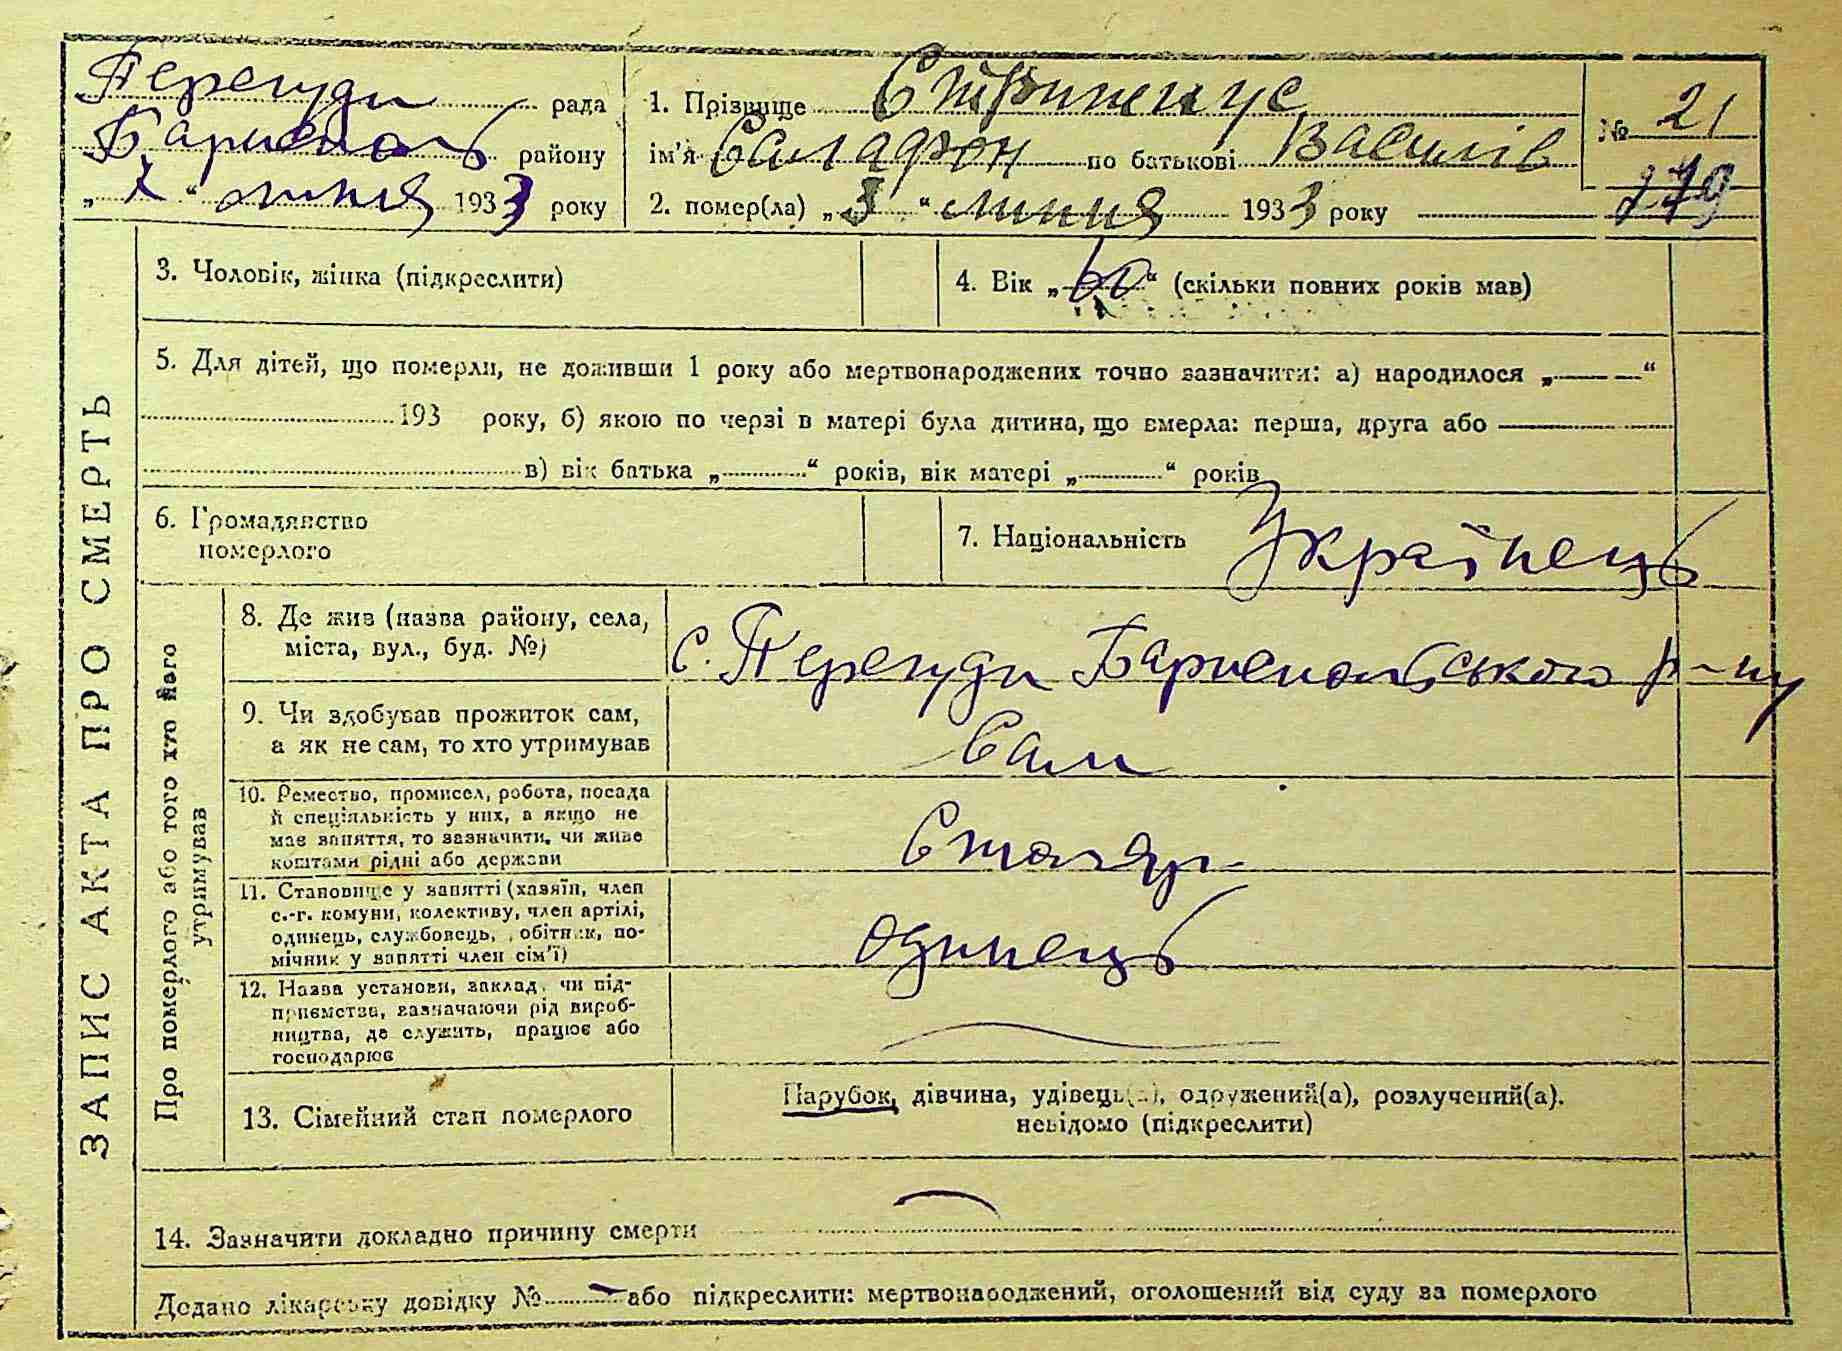 ЗАПИС АКТА ПРО СМЕРТЬ
Перегуди рада
Баришполь району
„ “ липня 1933 року
1. Прізвище
ім'я по батькові Василів
2. помер(ла) „3“ липня 1933 року
№ 21
279
3. Чоловік, жінка (підкреслити)
4. Вік „60“ (скільки повних років мав)
5. Для дітей, що померли, не доживши 1 року або мертвонароджених точно зазначити: а) народилося „ “
193 року, б) якою по черзі в матері була дитина, що вмерла: перша, друга або
в) вік батька „ “ років, вік матері „ “ років
6. Громадянство
померлого
7. Національність Українець
Про померлого або того хто його
утримував
8. Де жив (назва району, села,
міста, вул., буд. №)
с. Перегуди Баришпольського р-ну
9. Чи здобував прожиток сам,
а як не сам, то хто утримував
Сам
10. Ремество, промисел, робота, посада
й спеціяльність у них, а якщо не
має заняття, то зазначити, чи живе
коштами рідні або держави
Столяр
11. Становище у занятті (хазяїн, член
с.-г. комуни, колективу, член артілі,
одинець, службовець, робітник, по-
мічник у занятті член сім'ї)
одинець
12. Назва установи, заклад, чи під-
приємства, зазначаючи рід вироб-
ництва, де служить, працює або
господарює
13. Сімейний стан померлого
Парубок, дівчина, удівець(а), одружений(а), розлучений(а).
невідомо (підкреслити)
14. Зазначити докладно причину смерти
Додано лікарську довідку № або підкреслити: мертвонароджений, оголошений від суду за померлого